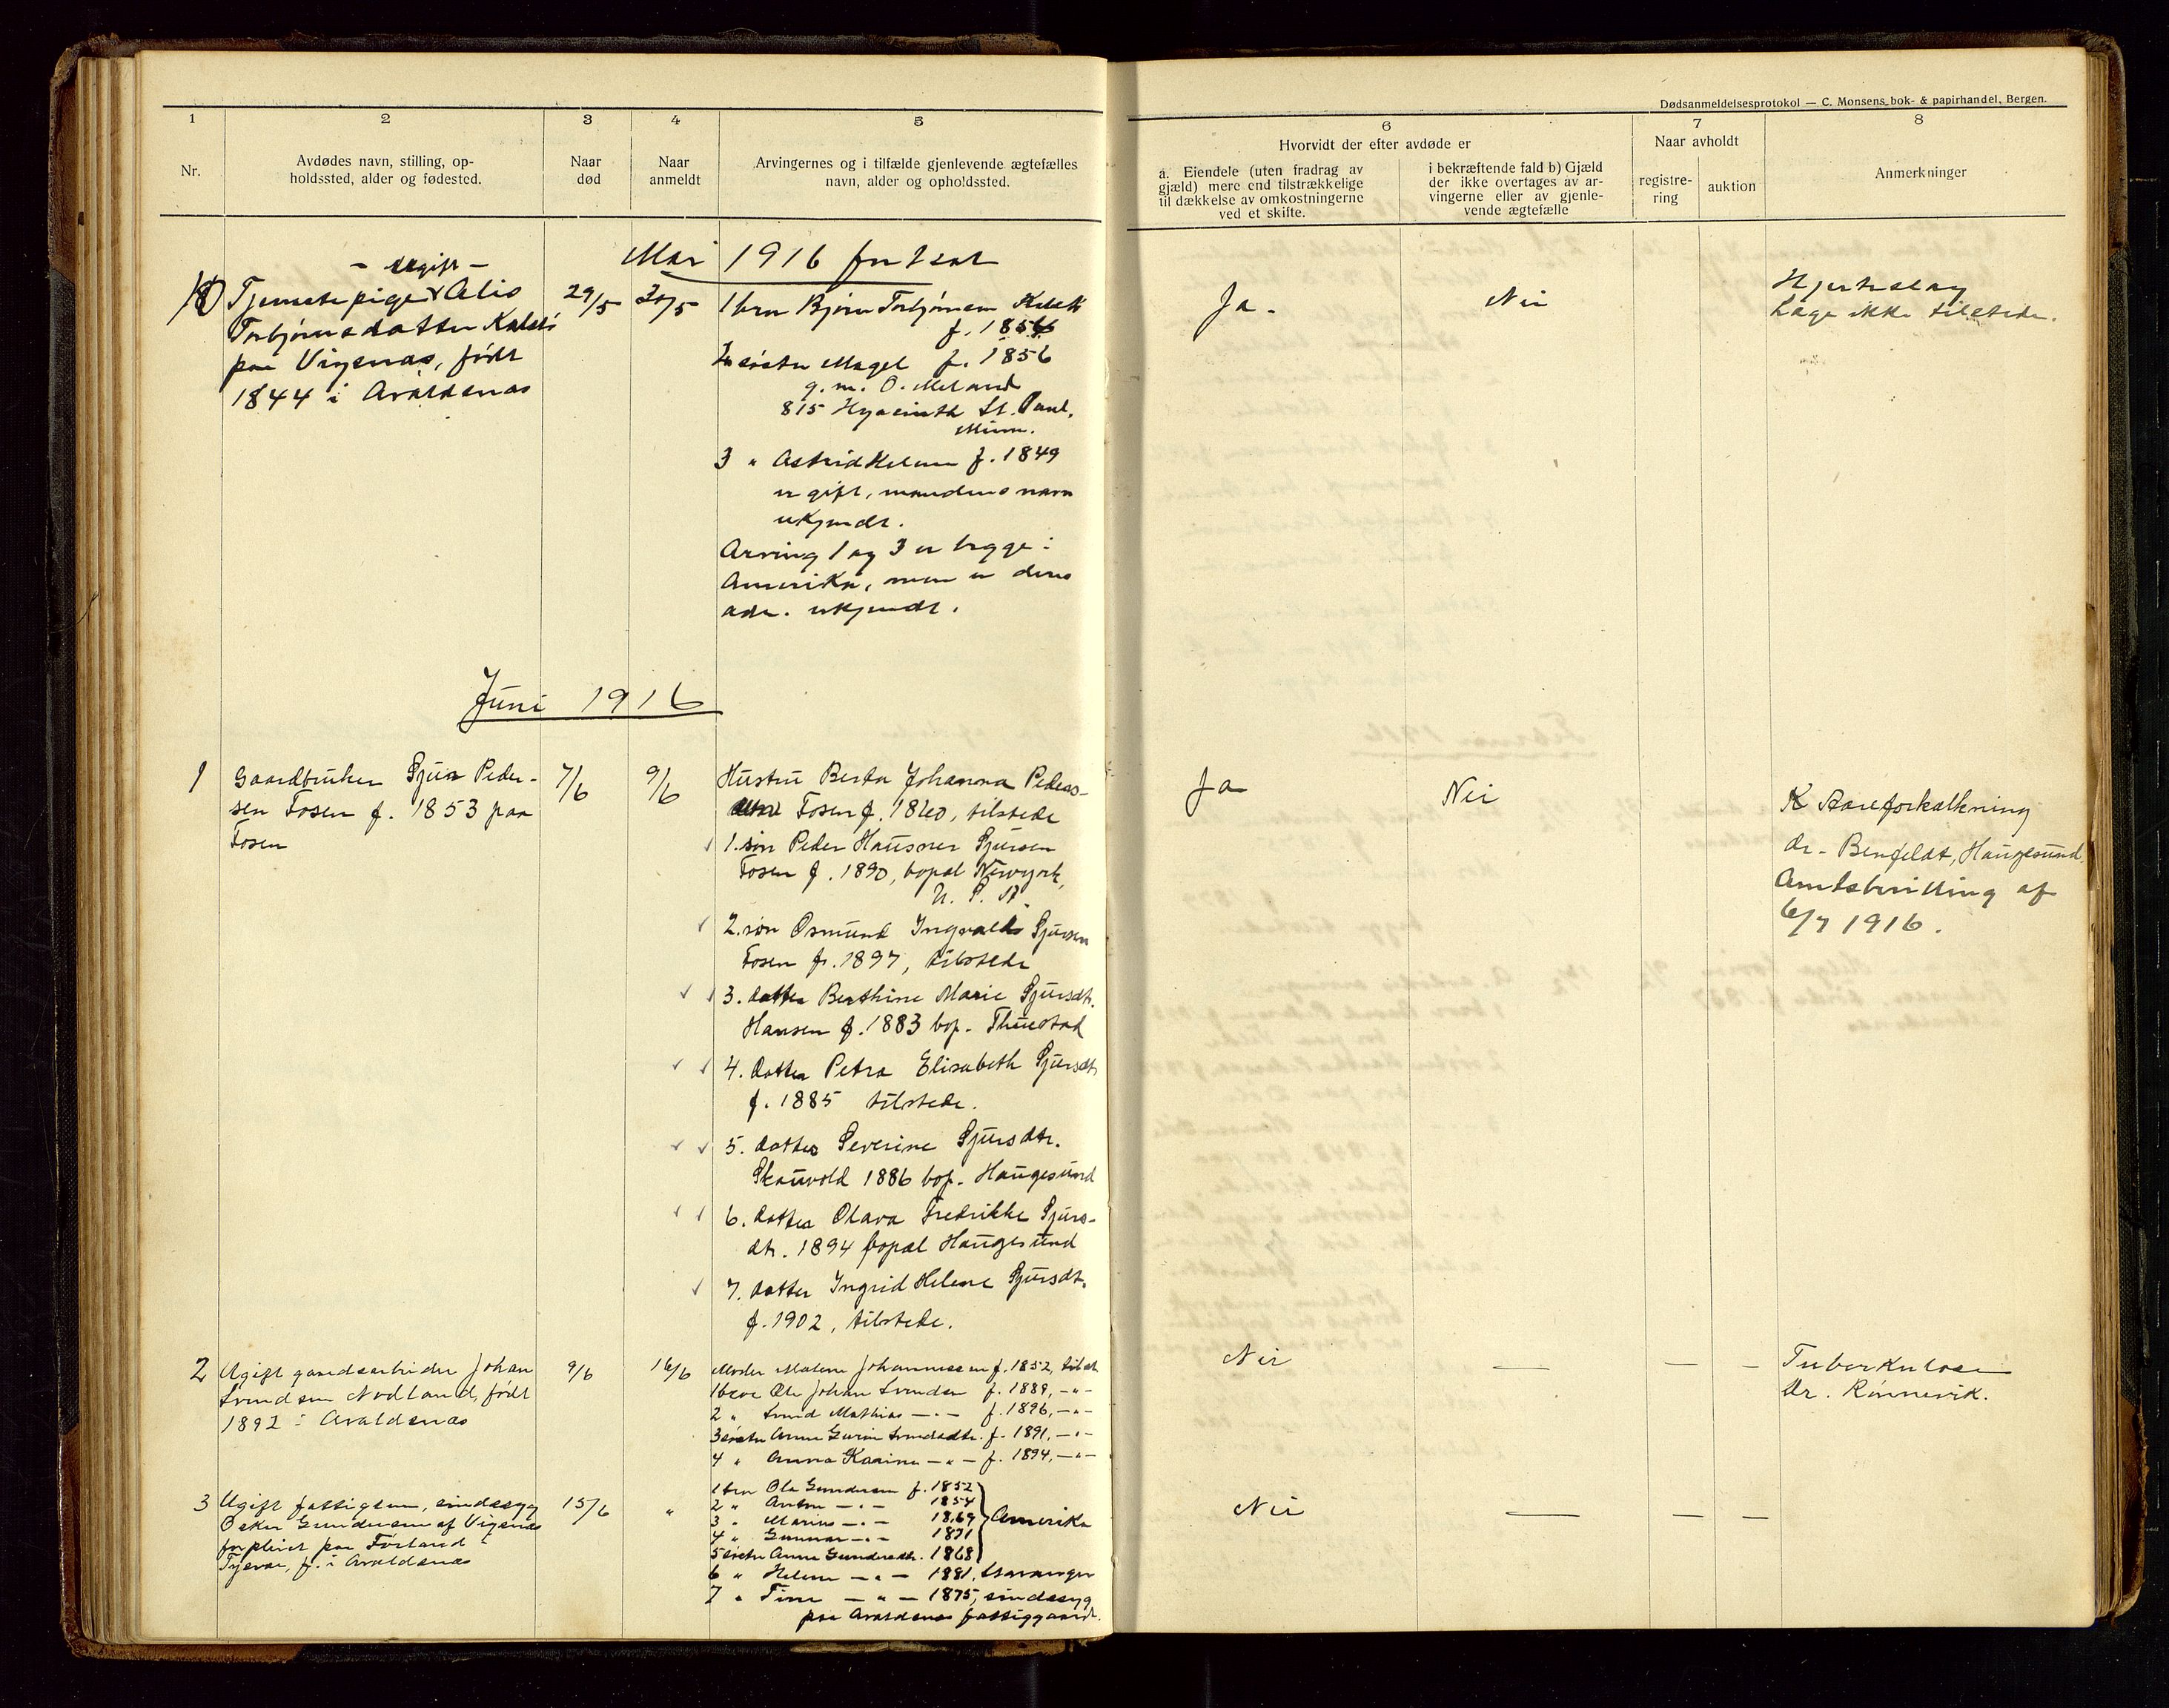 Dødsanmeldelsesprotokol — C. Monsens bok- & papirhandel, Bergen.
1 2 3 4 5 6 7 8
Nr.
Avdødes navn, stilling, op-
holdssted, alder og fødested.
Naar
død
Naar
anmeldt
Arvingernes og i tilfælde gjenlevende ægtefælles
navn, alder og opholdssted.
Hvorvidt der efter avdøde er
a. Eiendele (uten fradrag av
gjæld) mere end tilstrækkelige
til dækkelse av omkostningerne
ved et skifte.
i bekræftende fald b) Gjæld
der ikke overtages av ar-
vingerne eller av gjenle-
vende ægtefælle
Naar avholdt
registre-
ring
auktion
Anmerkninger
Mai 1916 fortsat
- ugift -
10 Tjenestepige Alis
Torbjørnsdatter
paa Vigenæs, født
1844 i Avaldsnæs
29/5 30/5
1 bror Bjørn Torbjørnsen
f. 1854
2 søster Magel f. 1856
g. m. O. Meland
815 Hyacinth St. Paul,
Minn.
3 " Astrid Helene f. 1849
er gift, mandens navn
ukjendt.
Arving 1 og 3 er begge i
Amerika, men er deres
adr. ukjendt.
Ja. Nei
Hjerteslag
Læge ikke tilstede.
Juni 1916
1 Gaardbruker Sjur Peder-
sen Fosen f. 1853 paa
Fosen
7/6 9/6
Hustru Berta Johanna Peders-
Fosen f. 1860, tilstede
1. søn Peder Hausner Sjursen
Fosen f. 1890, bopæl Newyork,
U. S. A.
2. søn Osmund Ingvald Sjursen
Fosen f. 1897, tilstede
3. datter Berthine Marie Sjursdtr.
Hansen f. 1883 bop. Thuestad
4. datter Petra Elisabeth Sjursdtr
f. 1885 tilstede.
5. datter Severine Sjursdtr.
Skauvold 1886 bop. Haugesund
6. datter Olava Fredrikke Sjurs-
dtr. 1894 bopæl Haugesund
7. datter Ingrid Helene Sjursdtr.
f. 1902, tilstede.
Ja Nei
Aareforkalkning
dr. Bengeldt, Haugesund.
Amtsbevilling af
6/7 1916.
2 Ugift gaardsarbeider Johan
Svendsen Nodland, født
1892 i Avaldsnæs
9/6 16/6
Moder Malene Johannessen f. 1852, tilst.
1 bror Ole Johan Svendsen f. 1889, -"-
2 " Svend Mathias -"- f. 1896, -"-
3 søster Anne Gurine Svendsdtr. f. 1891, -"-
4 " Anna Karine -"- f. 1894, -"-
Nei — — —
Tuberkulose
Dr. Rønnevik.
3 Ugift fattiglem, sindssyg
Osker Gundersen af Vigenæs
forpleiet paa Førland i
Tysvær, f. i Avaldsnæs
15/6 "
1 bror Ole Gundersen f. 1852
2 " Anton -"- 1854
3 " Marius -"- 1869
4 " Gunnar -"- 1871
5 søster Anne Gundersdtr. 1868
Amerika
6 " Helene -"- 1881, Stavanger
7 " Tine -"- 1875, sindssyg
paa Avaldsnes fattiggaard.
Nei — — —